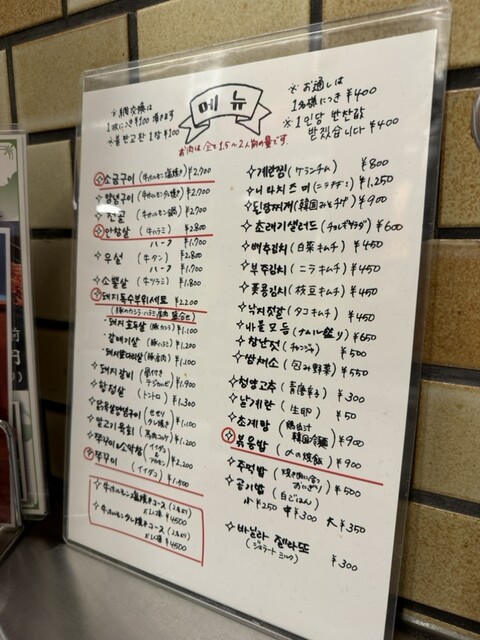 메뉴
※網交換は
1枚につき¥100 頂きます
※불판교환 1장 ¥100
※お通しは
1名様につき ¥400
※1인당 반찬값
받겠습니다 ¥400
お肉は全て1.5〜2人前の量です
소금구이 (牛ホルモン塩焼き) ¥2,700
양념구이 (牛ホルモンタレ焼き) ¥2,700
전골 (牛ホルモン鍋) ¥2,700
안창살 (牛ハラミ) ¥2,800
ハーフ ¥1,700
우설 (牛タン) ¥2,800
ハーフ ¥1,700
소뽈살 (牛ツラミ) ¥1,800
돼지특수부위세트 ¥2,200
돼지 (豚カシラ) ¥1,100
갈매기살 (豚ハラミ) ¥1,200
¥1,100
돼지갈비 (骨付き テジカルビ) ¥1,900
항정살 (トントロ) ¥1,300
(セセリ タレ焼き) ¥1,100
말고기 육회 (馬肉ユッケ) ¥1,200
쭈꾸미&소막창 (イイダコ & ) ¥2,200
쭈꾸미 (イイダコ) ¥1,500
牛ホルモン塩焼きコース (2名より)
1人様 ¥4500
牛ホルモンタレ焼きコース (2名より)
1人様 ¥4500
계란찜 (ケランチム) ¥800
니라치즈미 (ニラチヂミ) ¥1,250
된장찌개 (韓国みそチゲ) ¥900
초레기샐러드 (チョレギサラダ) ¥600
배추김치 (白菜キムチ) ¥450
부추김치 (ニラキムチ) ¥450
풋콩김치 (枝豆キムチ) ¥450
낙지젓갈 (タコキムチ) ¥450
나물모듬 (ナムル盛り) ¥650
창난젓 (チャンジャ) ¥500
쌈채소 (包み野菜) ¥550
청양고추 (青唐辛子) ¥300
날계란 (生卵) ¥50
초계탕 (鶏出汁 韓国冷麺) ¥900
볶음밥 (〆の焼飯) ¥900
주먹밥 ¥500
공기밥 (白ごはん)
小 ¥250 中 ¥300 大 ¥350
바닐라 젤라또
(ジェラート ミルク) ¥300